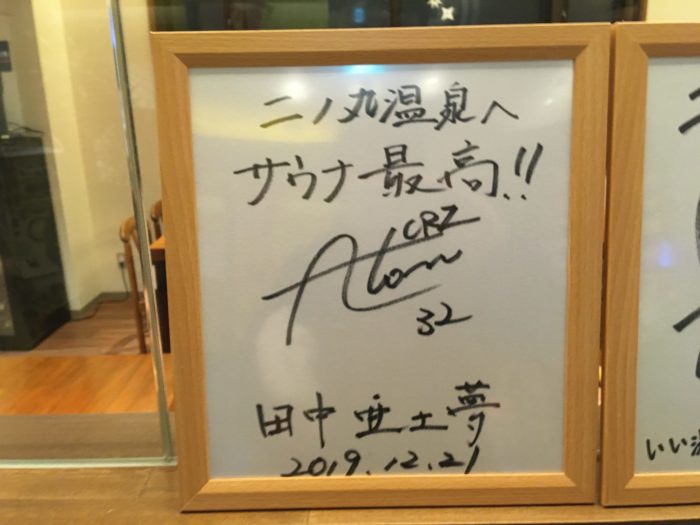 二ノ丸温泉へ
サウナ最高!!
CRZ
Atom
32
田中亜土夢
2019.12.21
いい